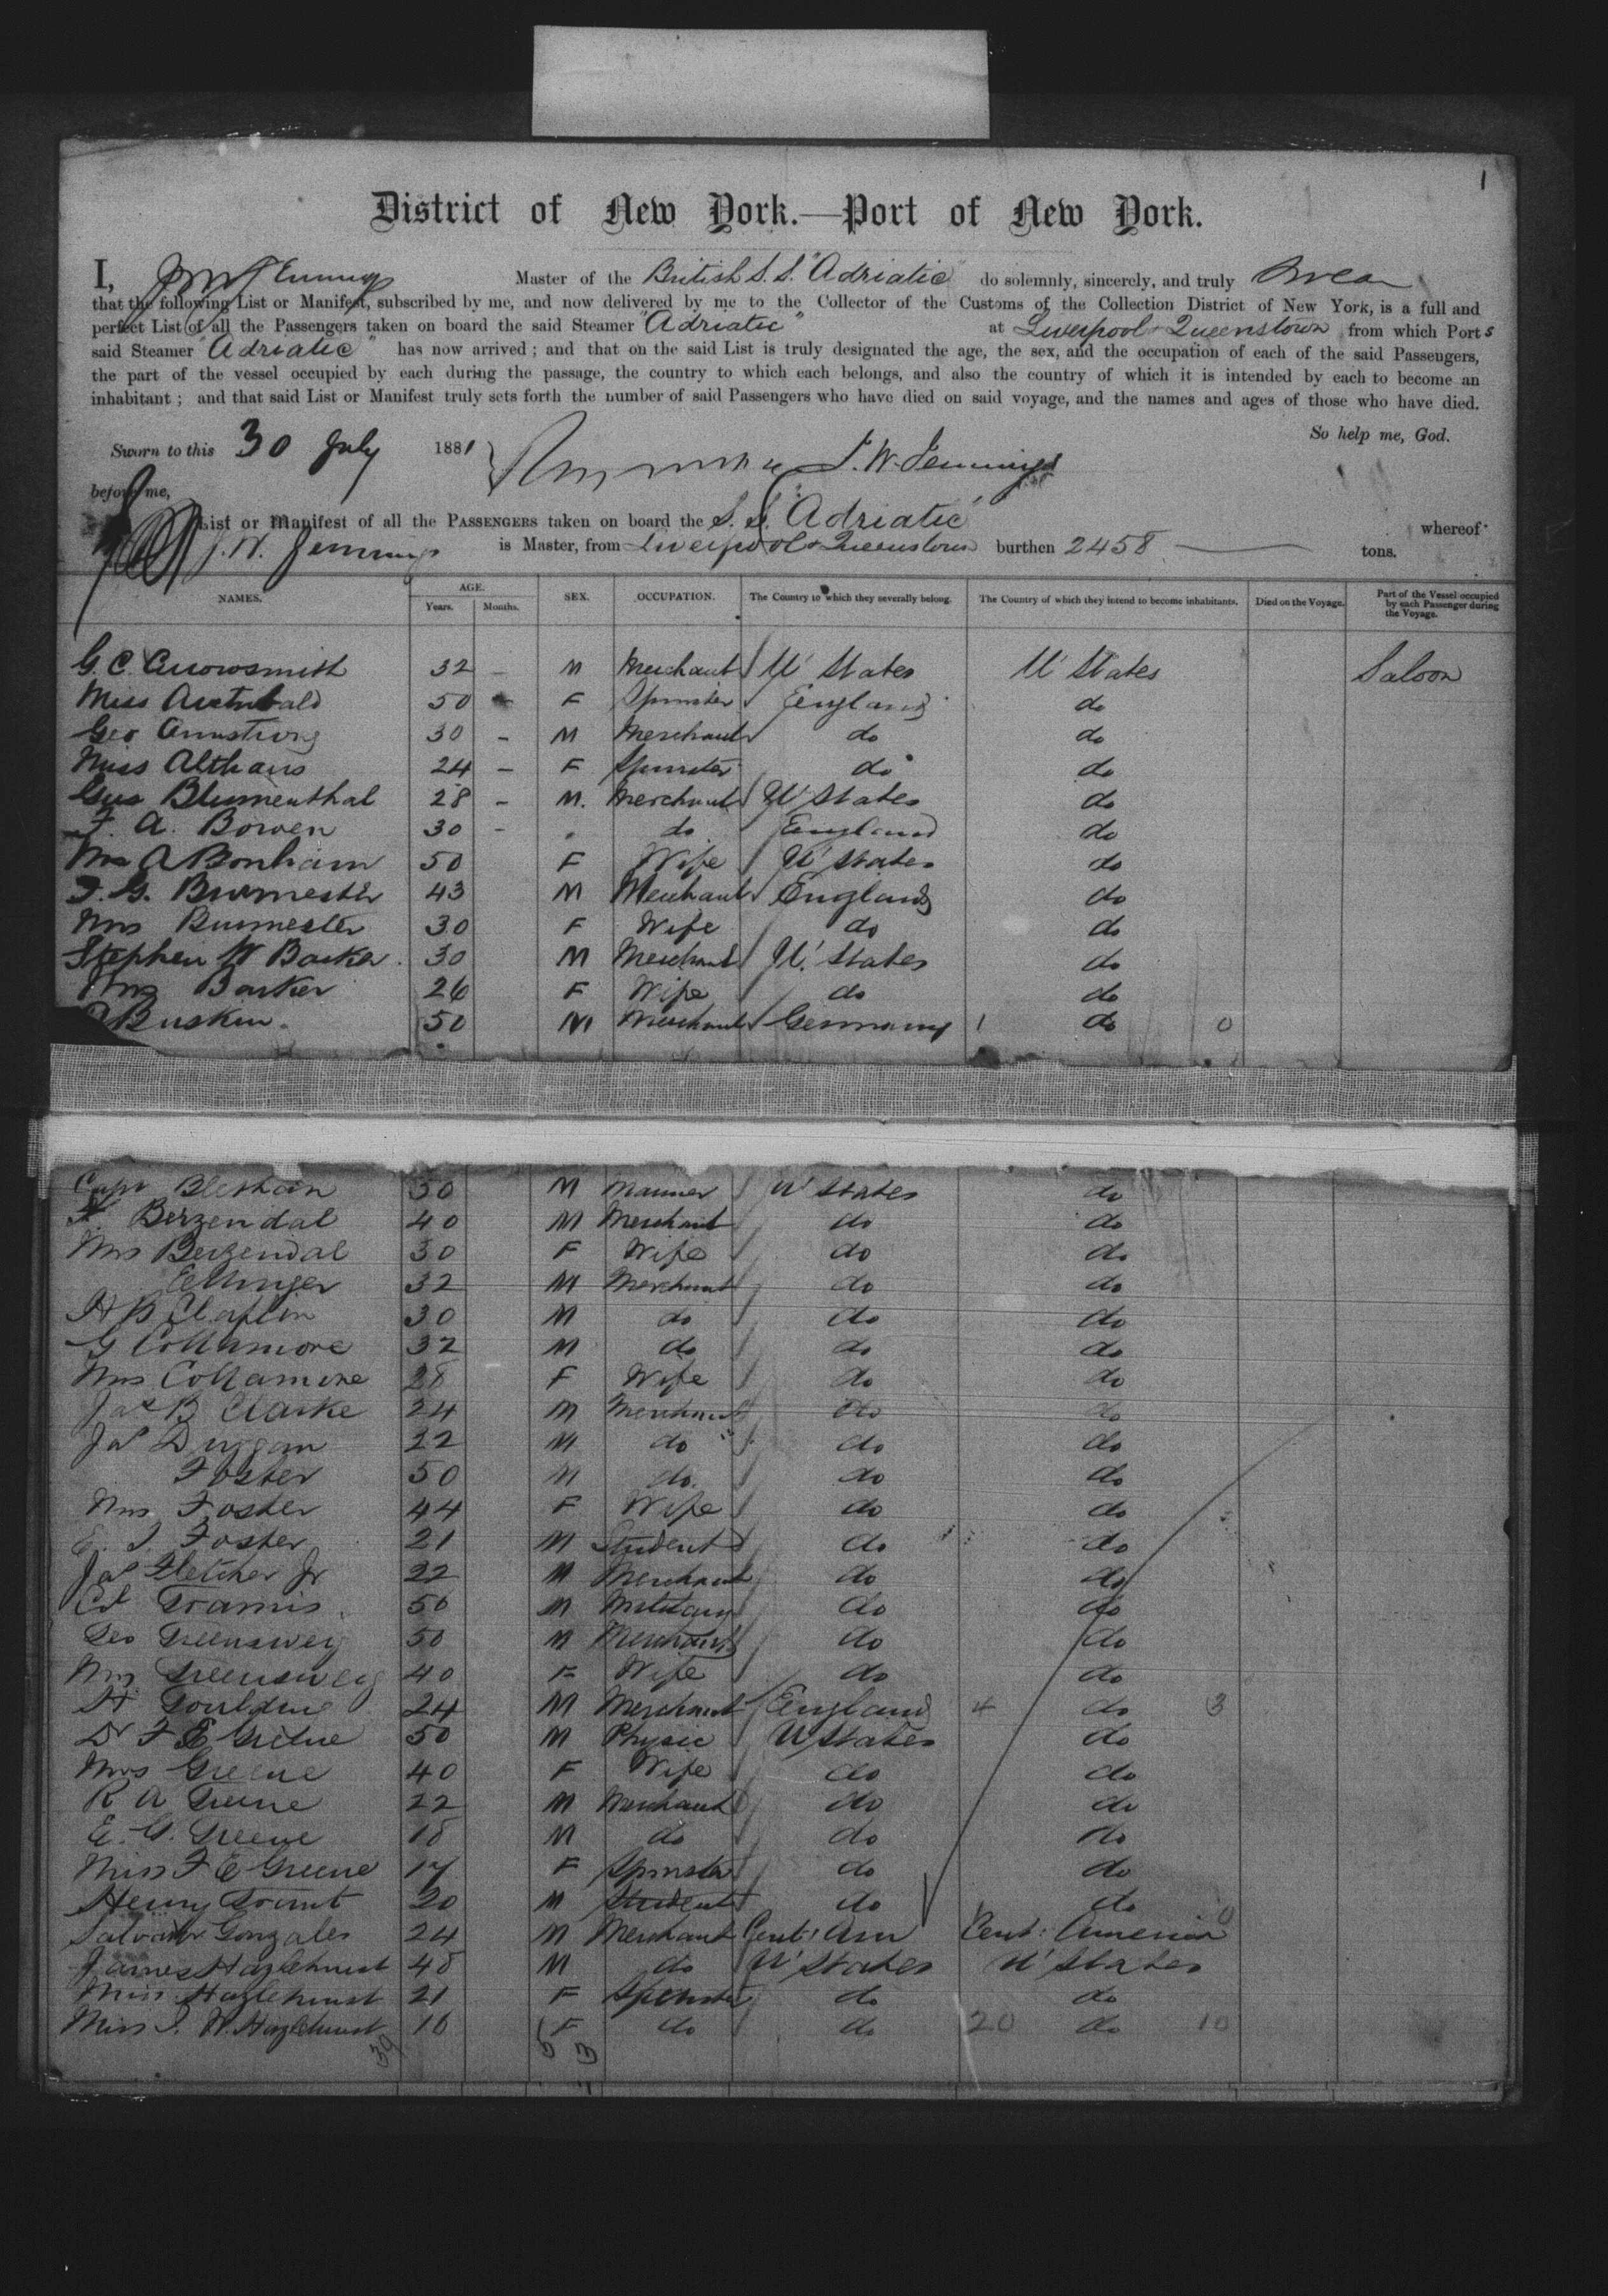 1
District of New York.—Port of New York.
I, J W Jennings Master of the British S. S. "Adriatic" do solemnly, sincerely, and truly swear
that the following List or Manifest, subscribed by me, and now delivered by me to the Collector of the Customs of the Collection District of New York, is a full and
perfect List of all the Passengers taken on board the said Steamer "Adriatic" at Liverpool & Queenstown from which Ports
said Steamer "Adriatic" has now arrived; and that on the said List is truly designated the age, the sex, and the occupation of each of the said Passengers,
the part of the vessel occupied by each during the passage, the country to which each belongs, and also the country of which it is intended by each to become an
inhabitant; and that said List or Manifest truly sets forth the number of said Passengers who have died on said voyage, and the names and ages of those who have died.
So help me, God.
Sworn to this 30 July 1881 J. W. Jennings
before me,
List or Manifest of all the PASSENGERS taken on board the S. S. Adriatic whereof
J. W. Jennings is Master, from Liverpool & Queenstown burthen 2458 — tons.
NAMES. AGE. Years. Months. SEX. OCCUPATION. The Country to which they severally belong. The Country of which they intend to become inhabitants. Died on the Voyage. Part of the Vessel occupied by each Passenger during the Voyage.
G. C. Arrowsmith 32 - M Merchant U States U States Saloon
Miss Archibald 50 - F Spinster England do
Geo Armstrong 30 - M Merchant do do
Miss Althaus 24 - F Spinster do do
Gus Blumenthal 28 - M. Merchant U States do
F. A. Bowen 30 - " do England do
Mrs A Bonham 50 F Wife U States do
F. G. Burmester 43 M Merchant England do
Mrs Burmester 30 F Wife do do
Stephen W Barker 30 M Merchant U. States do
Mrs Barker 26 F Wife do do
Buskin. 50 M Merchant Germany 1 do 0
Capt 50 M Mariner U States do
Berzendal 40 M Merchant do do
Mrs Berzendal 30 F Wife do do
Ettinger 32 M Merchant do do
H B Claflin 30 M do do do
G Collamore 32 M do do do
Mrs Collamore 28 F Wife do do
Jas B Clarke 24 M Merchant do do
Jas Duggan 22 M do do do
Foster 50 M do. do do
Mrs Foster 44 F Wife do do
E. J. Foster 21 M Student do do
Jas Fletcher Jr 22 M Merchant do do
50 M Military do do
Geo Greensweig 50 M Merchant do do
Mrs Greensweig 40 F Wife do do
H Goulding 24 M Merchant England 4 do 3
Dr F E Greene 50 M Physic U States do
Mrs Greene 40 F Wife do do
R A Greene 22 M Merchant do do
E. G. Greene 18 M do do do
Miss F E Greene 17 F Spinster do do
Henry Grant 20 M Student do do 0
Salvador Gonzales 24 M Merchant Cent: Am Cent: America
James Hazlehurst 48 M do U States U States
Miss Hazlehurst 21 F Spinster do do
Miss J. W. Hazlehurst 16 F do do 20 do 10
39 5 3